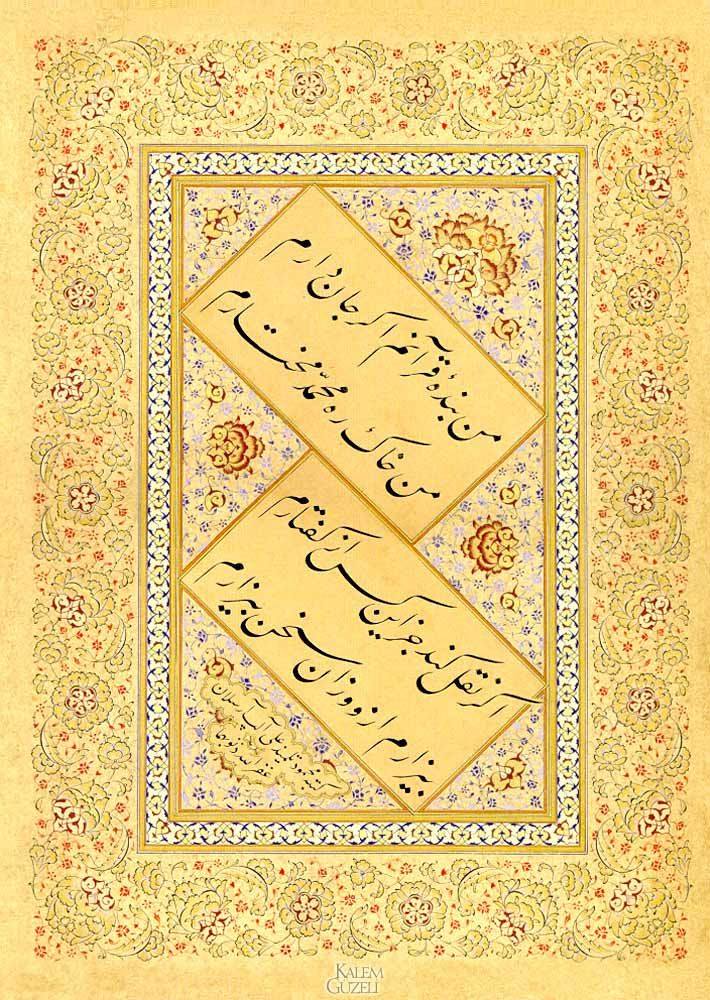 من بندهٔ قرآنم اگر جان دارم
من خاک ره محمد مختارم
اگر نقل کند جز این کس از گفتارم
بیزارم از و وزان سخن بیزارم
KALEM GÜZELİ